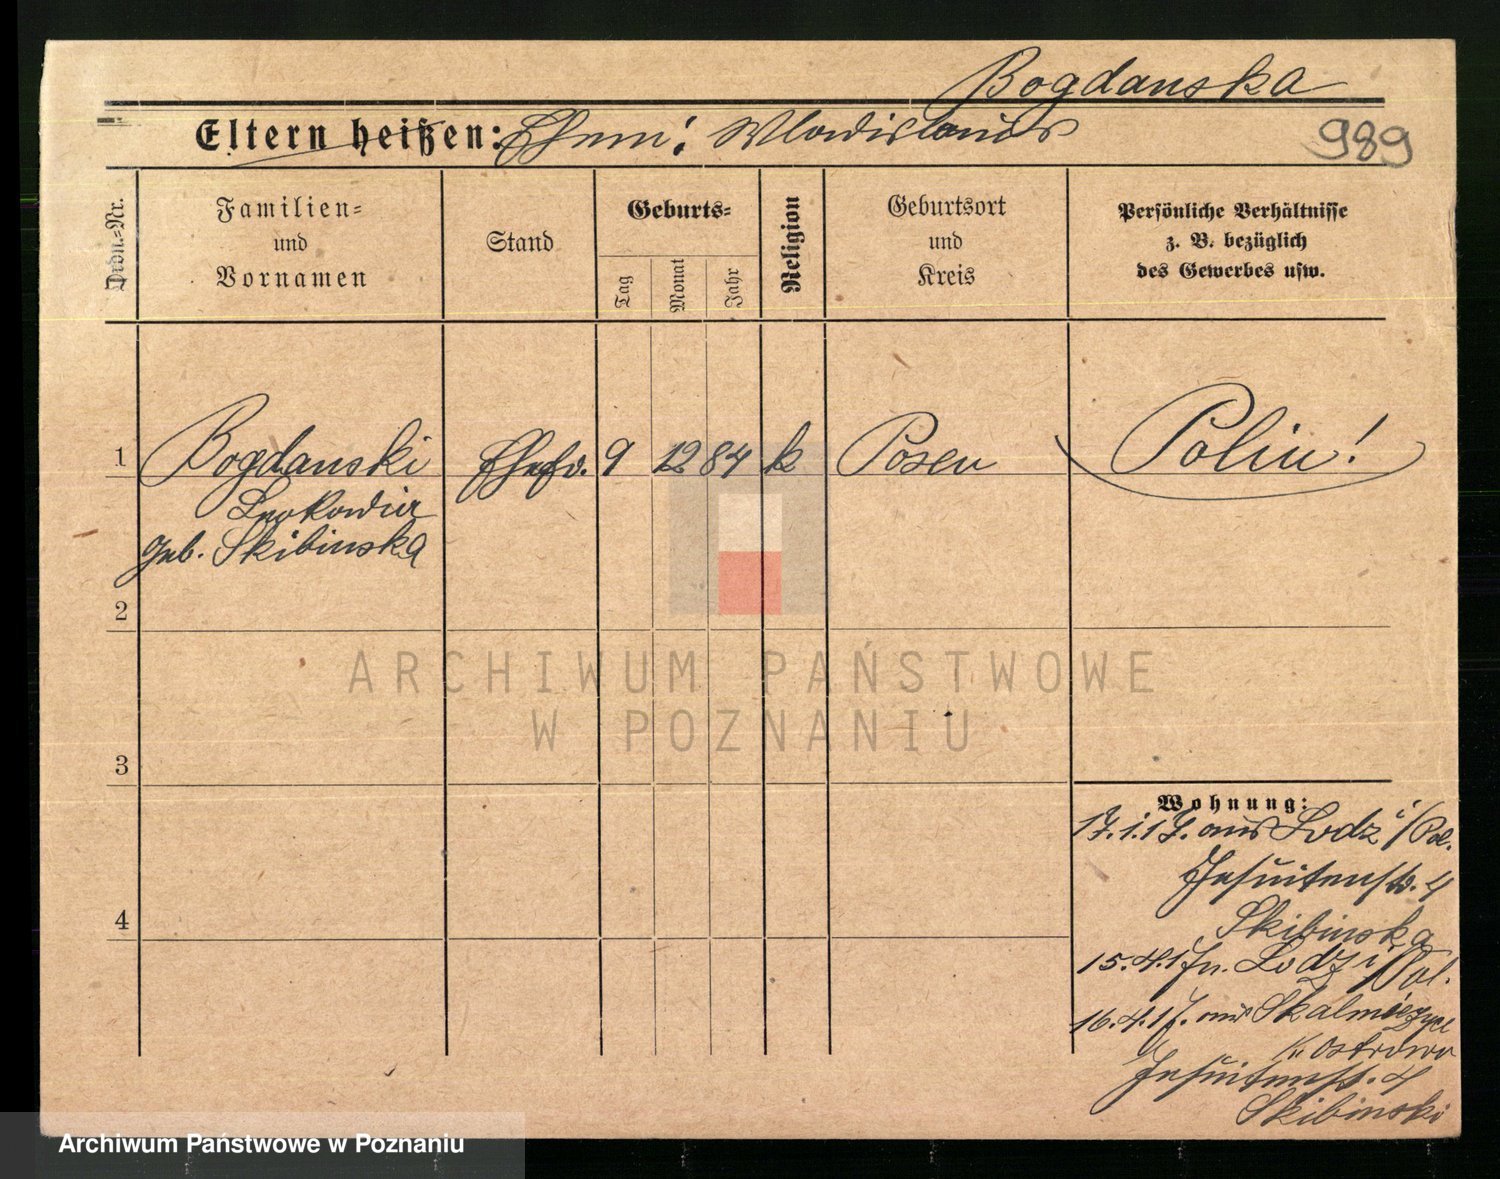 Bogdanska
Eltern heißen: Ehem: Wladislaus
989
Ordn.-Nr.
Familien-
und
Vornamen
Stand
Geburts-
Tag
Monat
Jahr
Religion
Geburtsort
und
Kreis
Persönliche Verhältnisse
z. B. bezüglich
des Gewerbes usw.
1
Bogdanski
geb. Skibinska
Ehefr.
9
12
84
k
Posen
Polin!
2
3
4
Wohnung:
17.1.17. aus Lodz i/Pol.
Jesuitenstr. 4
Skibinska
15.4.17 n. Lodz i/Pol.
16.4.17. aus Skalmierzyce
Kr Ostrowo
Jesuitenstr. 4
Skibinski
ARCHIWUM PAŃSTWOWE
W POZNANIU
Archiwum Państwowe w Poznaniu